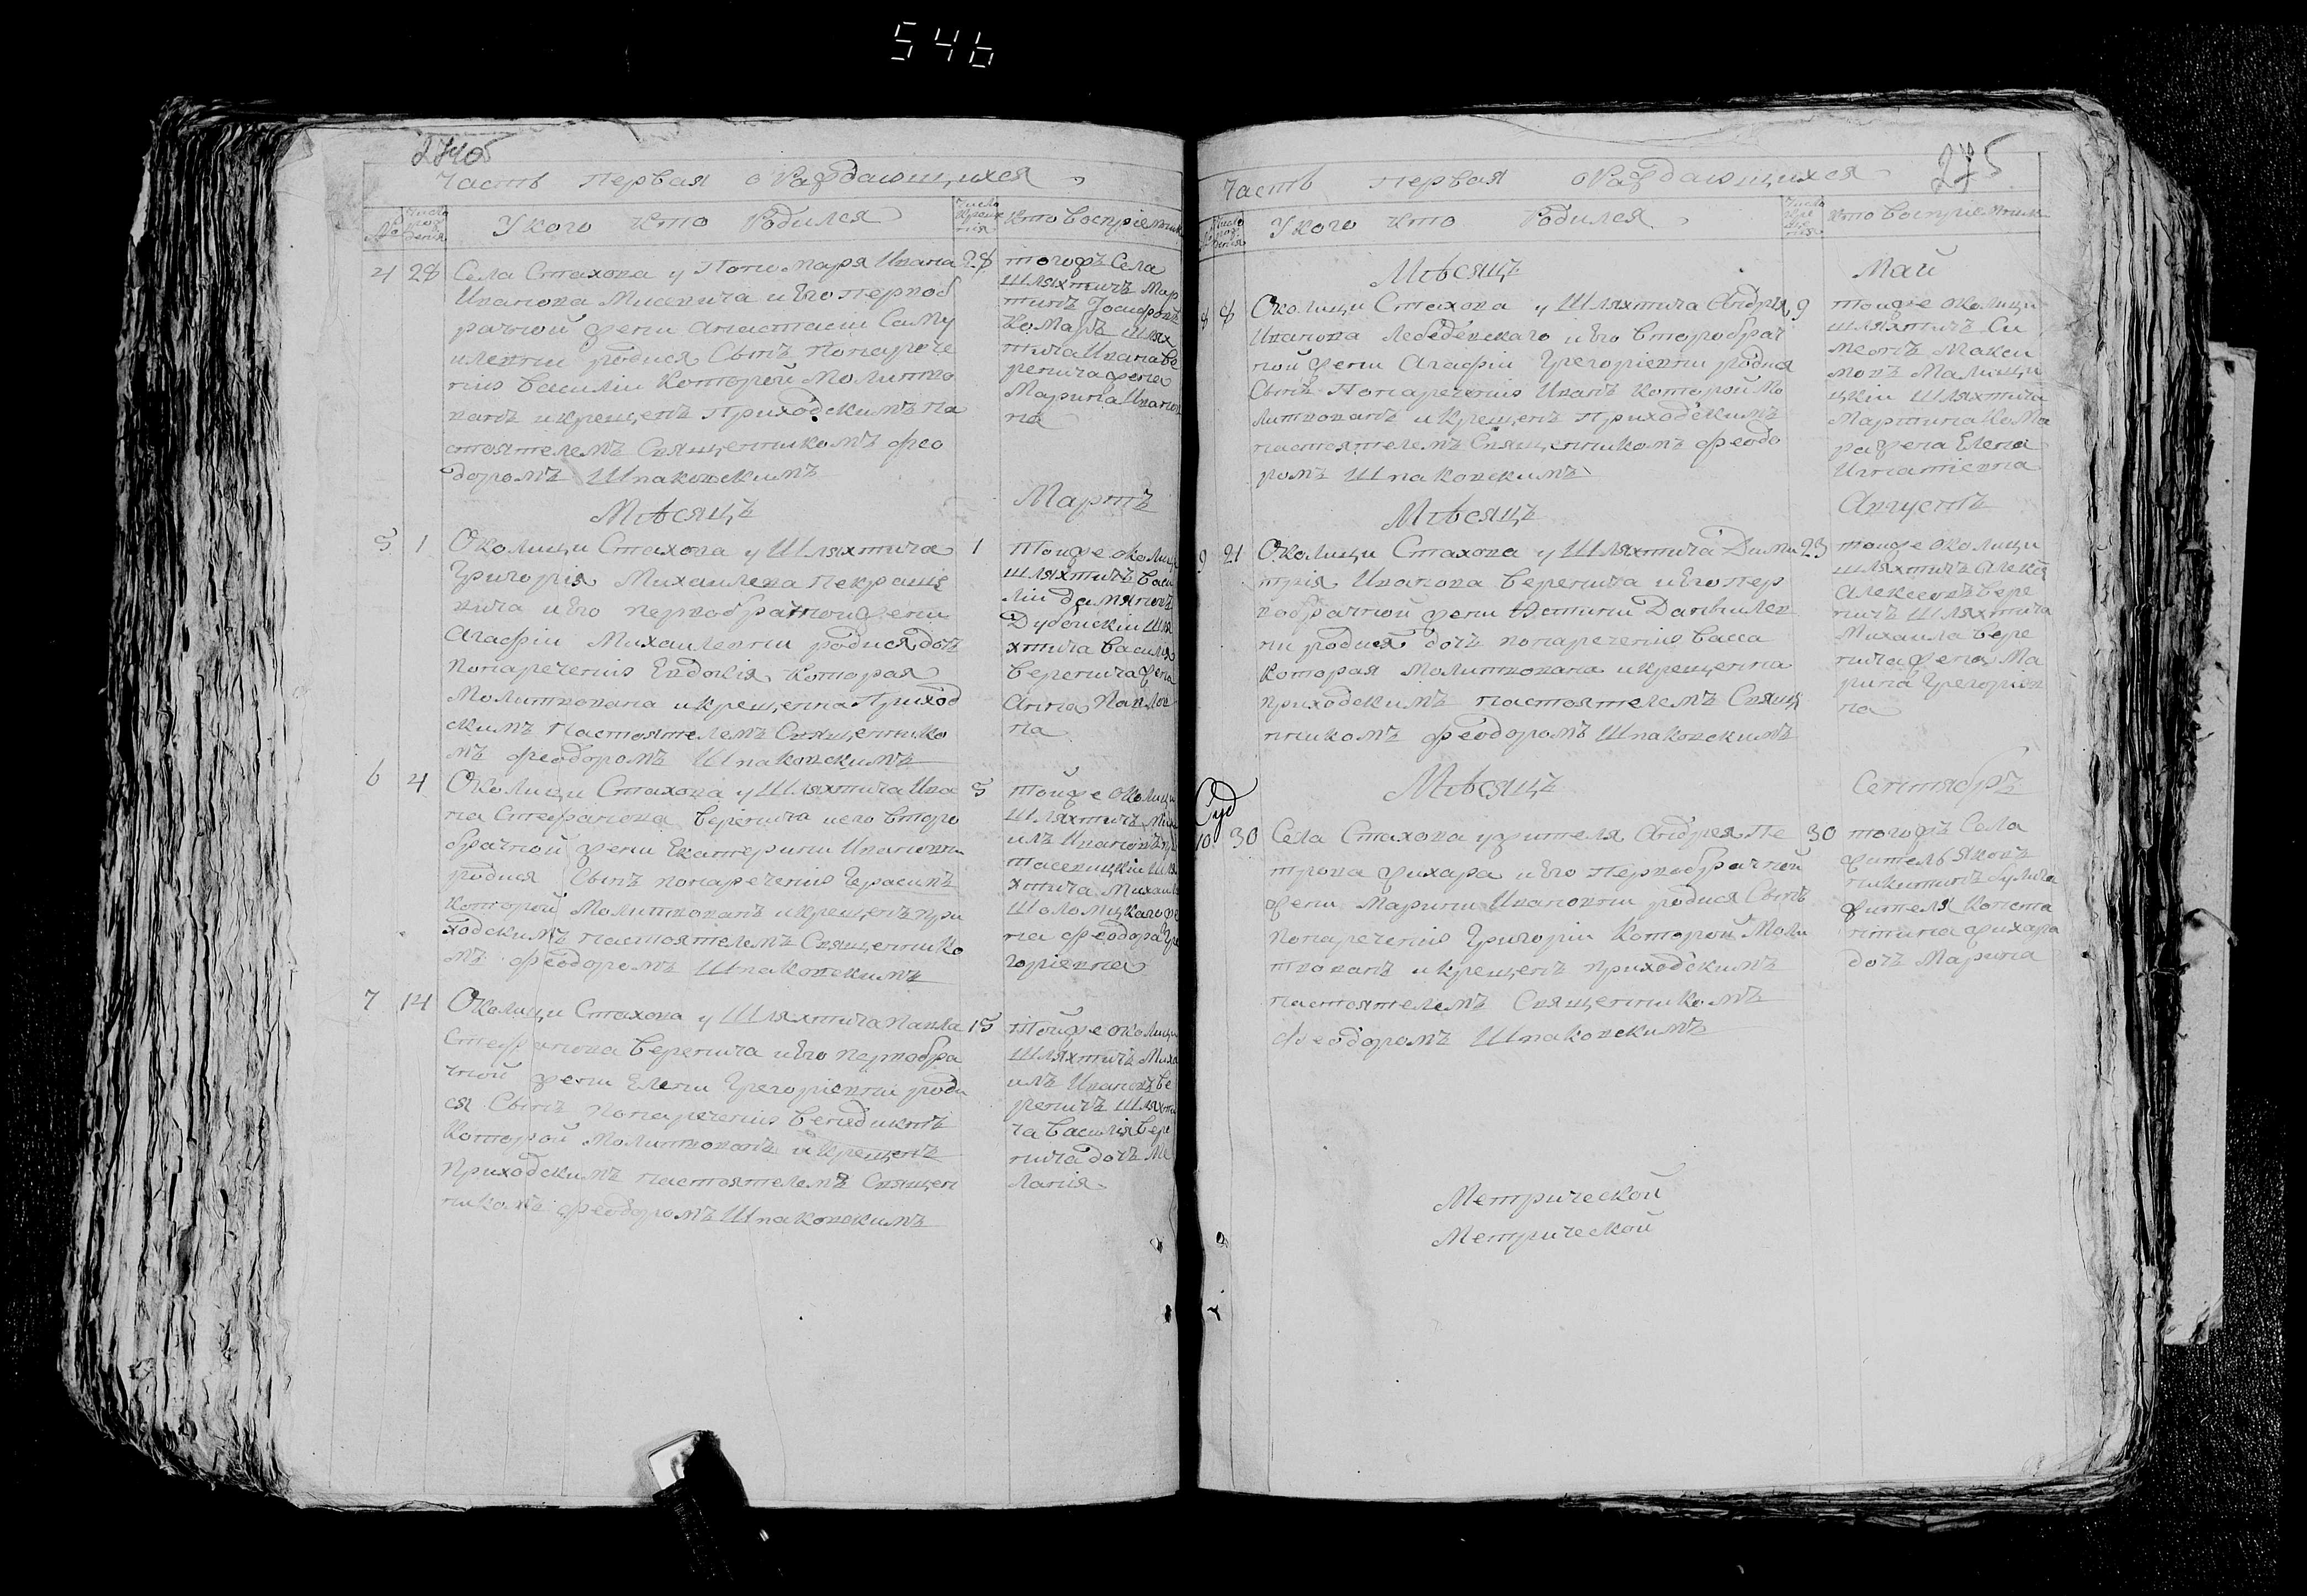 546
274об
Часть первая о Раждающихся
№
Число рож дения
У кого кто Родился
Число креще ния
кто Восприемник
4 28 Села Стахова у Пономаря Ивана 28
Иванова Мисевича и Его первоб
рачной жены Анастасіи Саму
иленны родися Сынъ Понарече
нію Василіи Которой Молитво
ванъ и крещенъ Приходскимъ На
стоятелемъ Священникомъ Фео
доромъ Шпаковскимъ
тогожъ Села
Шляхтичъ Мар
тинъ Іосифовъ
Комаръ Шлях
тича Ивана Ве
ренича жена
Марина Иванов
на
Месяцъ Мартъ
5 1 Околицы Стахова у Шляхтича 1
Григорія Михаилева Пекраше
вича и Его первобрачной жены
Агафіи Михаиленны родися дочь
Понаречению Евдокія Которая
Молитвована и крещенна Приход
скимъ Настоятелемъ Священнико
мъ Феодоромъ Шпаковскимъ
Тойже околицы
шляхтичъ Васи
ліи Дамяновъ
Дубейскіи Шля
хтича Василія
Веренича жена
Анна Павлов
на
6 4 Околицы Стахова у Шляхтича Ива 5
на Стефанова Веренича и его второ
брачной жены Екатерины Ивановны
родися Сынъ понаречению Герасимъ
Которой Молитвованъ и крещенъ при
ходскимъ настоятелемъ Священнико
мъ Феодоромъ Шпаковскимъ
тойже околицы
Шляхтичъ Миха
илъ Ивановъ
Шля
хтича Михаила
Шоломицкаго же
на Феодора Гре
горіевна
7 14 Околицы Стахова у Шляхтича Павла 15
Стефанова Веренича и Его первобра
чной жены Елены Грегоріевны роди
ся Сынъ Понаречению Бенедиктъ
Которой Молитвованъ и крещенъ
Приходскимъ настоятелемъ Священ
никомъ Феодоромъ Шпаковскимъ
Тойже околицы
Шляхтичъ Миха
илъ Ивановъ Ве
реничъ Шляхти
ча Василія Вере
нича дочь Ме
ланія
275
Часть первая о Раждающихся
У кого кто Родился
кто Восприемник
Месяцъ Май
8 8 Околицы Стахова у Шляхтича Андрея 9
Иванова Лебедевскаго и Его второбрач
ной жены Агафіи Грегоріевны родися
Сынъ Понаречению Иванъ Которой Мо
литвованъ и крещенъ Приходскимъ
настоятелемъ Священникомъ Феодо
ромъ Шпаковскимъ
тойже околицы
шляхтичъ Си
меонъ Макси
мовъ Малищи
цкіи Шляхтича
Мартина Кома
ра жена Елена
Игнатіевна
Месяцъ Августъ
9 21 Околицы Стахова у Шляхтича Дими 23
трія Иванова Веренича и Его пер
вобрачной жены Устины Даниілев
ны родися дочь понаречению Васса
которая Молитвована и крещенна
приходскимъ настоятелемъ Свящ
нникомъ Феодоромъ Шпаковскимъ
тойже околицы
шляхтичъ Алексей
Алексеевъ Вере
ничъ Шляхтича
Михаила Вере
нича жена Ма
рина Грегоріев
на
Месяцъ Сентябръ
Суд
10 30 Села Стахова у жителя Андрея Пе 30
трова Жихара и Его Первобрачной
жены Марины Ивановны родися Сынъ
Понаречению Григоріи Которой Моли
твованъ и крещенъ приходскимъ
настоятелемъ Священникомъ
Феодоромъ Шпаковскимъ
тогожъ Села
житель Яковъ
Никитинъ
жителя Конста
нтина Жихара
дочь Марина
Метрической
Метрической